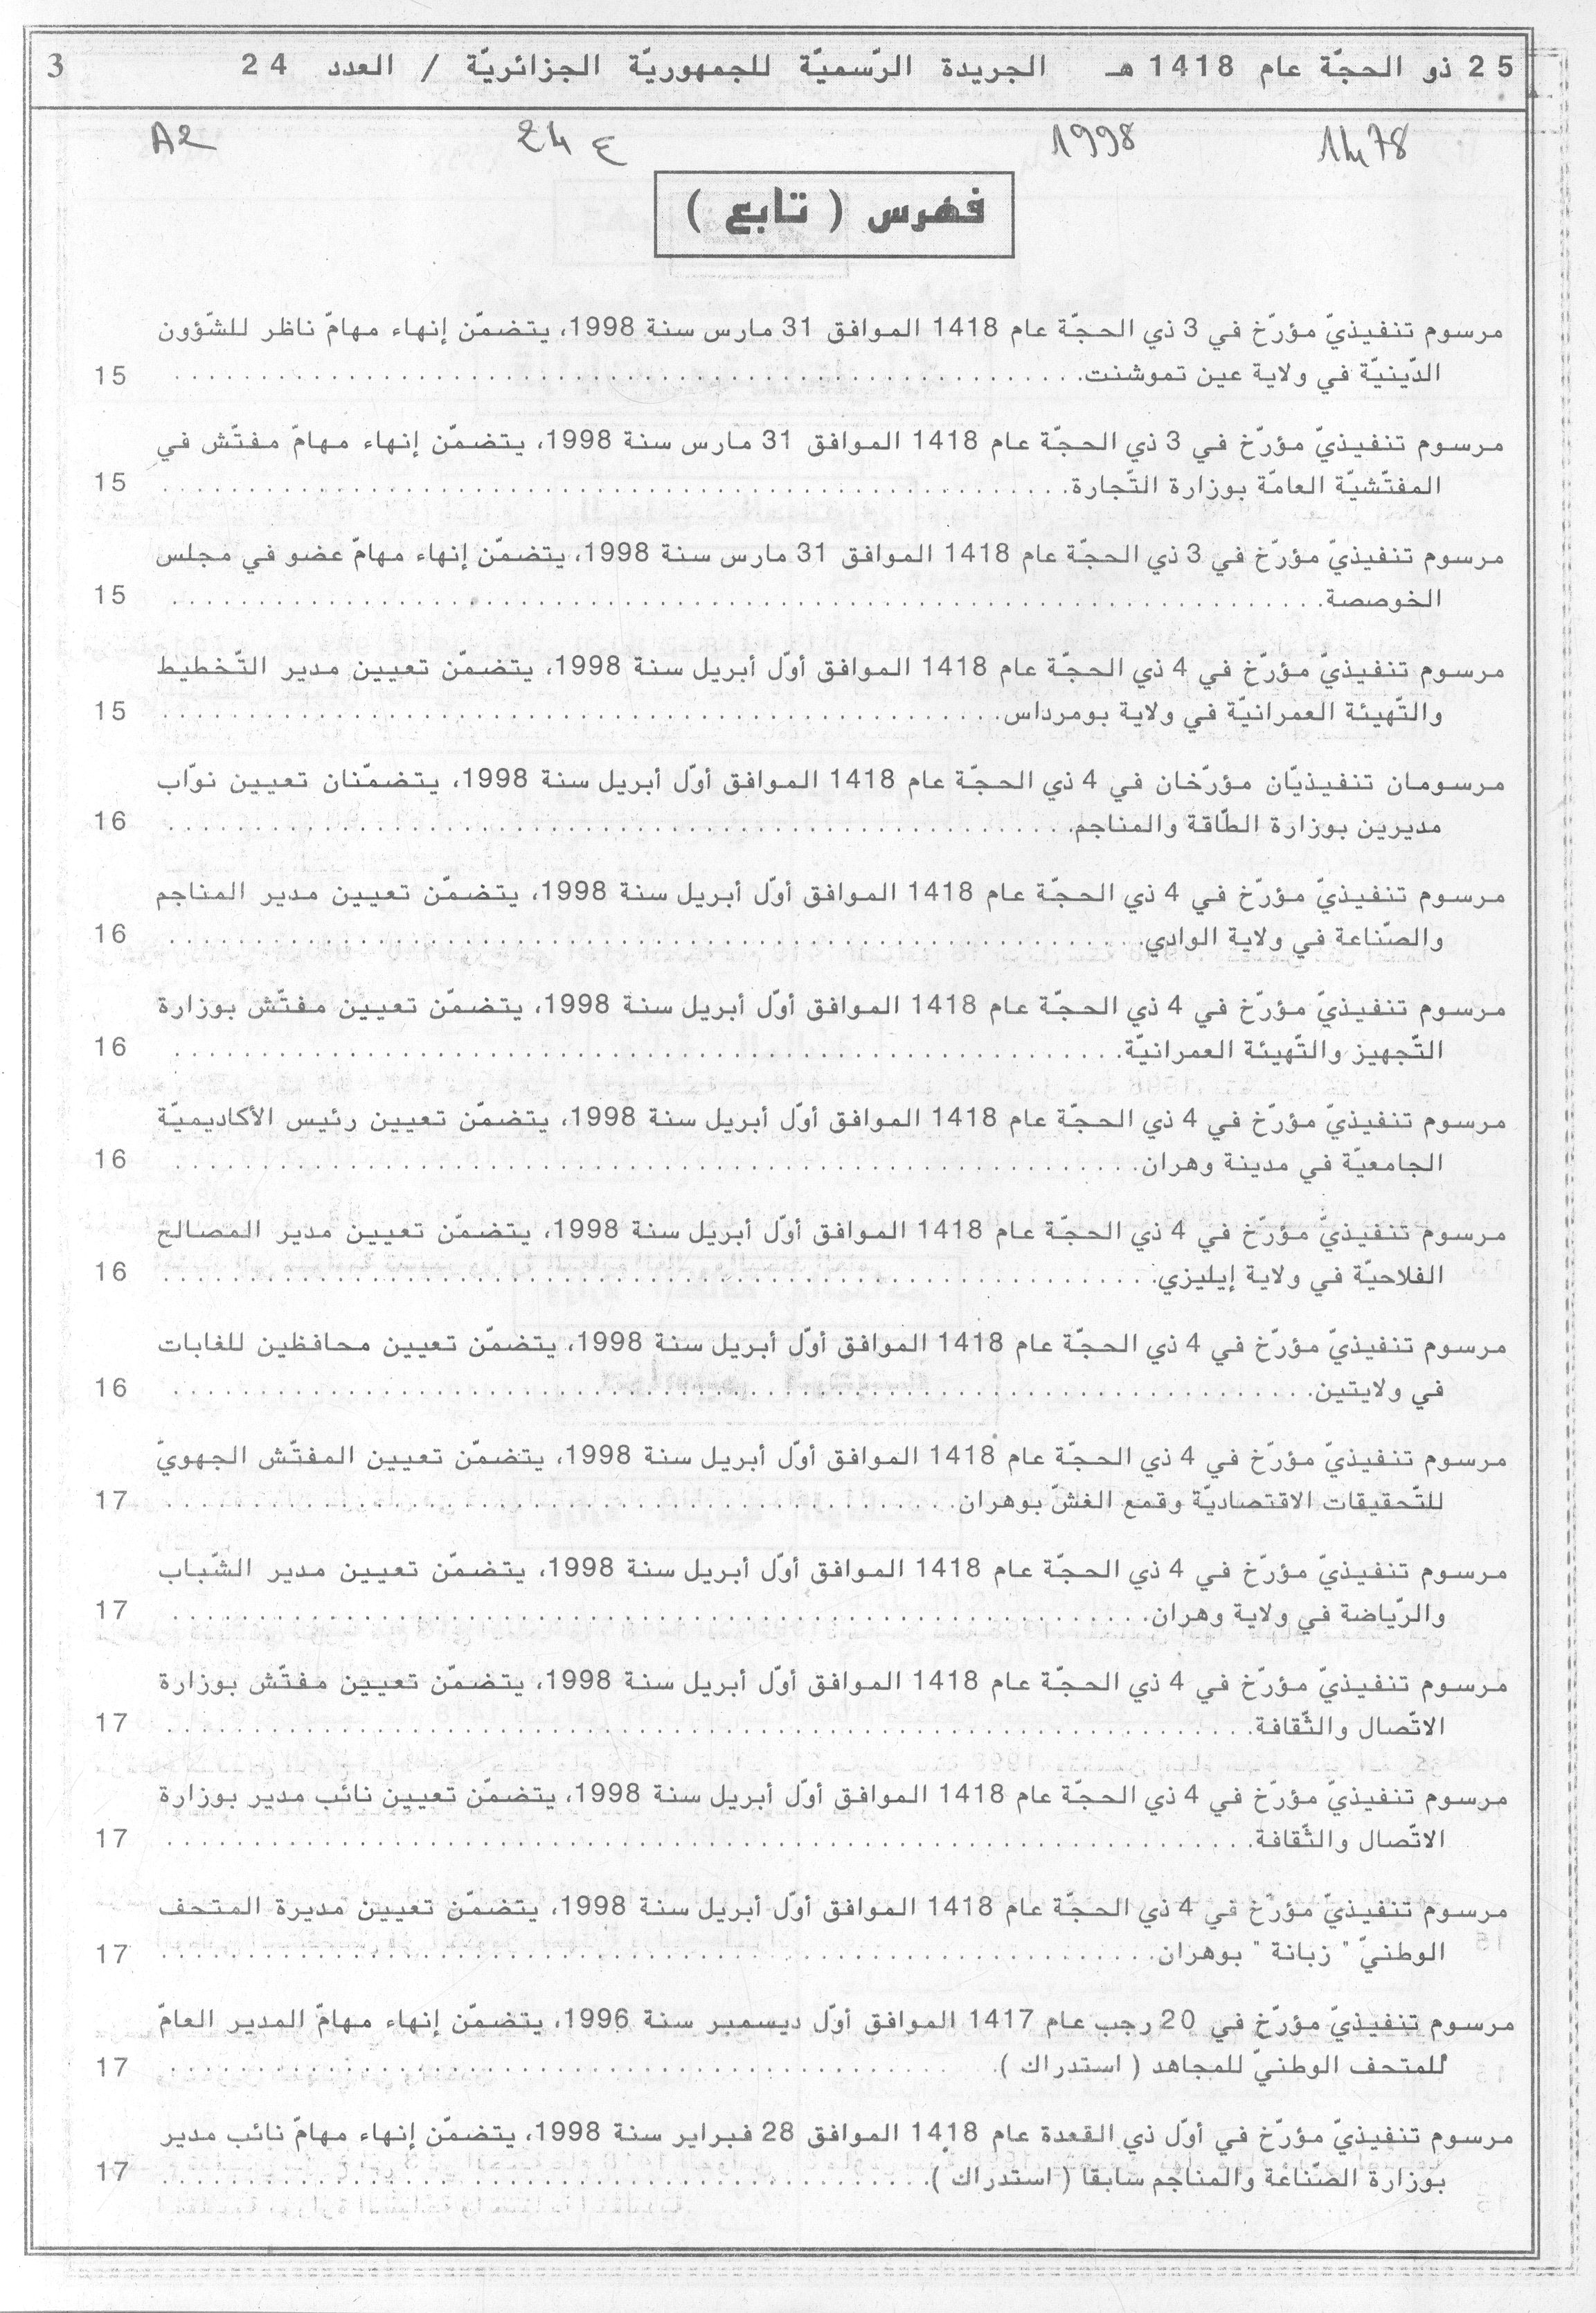 25 ذو الحجّة عام 1418 هـ الجريدة الرّسميّة للجمهوريّة الجزائريّة / العدد 24 3
1478 1998 ع 24 A2
فهرس ( تابع )
مرسوم تنفيذيّ مؤرّخ في 3 ذي الحجّة عام 1418 الموافق 31 مارس سنة 1998، يتضمّن إنهاء مهامّ ناظر للشّؤون
الدّينيّة في ولاية عين تموشنت. 15
مرسوم تنفيذيّ مؤرّخ في 3 ذي الحجّة عام 1418 الموافق 31 مارس سنة 1998، يتضمّن إنهاء مهامّ مفتّش في
المفتّشيّة العامّة بوزارة التّجارة. 15
مرسوم تنفيذيّ مؤرّخ في 3 ذي الحجّة عام 1418 الموافق 31 مارس سنة 1998، يتضمّن إنهاء مهامّ عضو في مجلس
الخوصصة. 15
مرسوم تنفيذيّ مؤرّخ في 4 ذي الحجّة عام 1418 الموافق أوّل أبريل سنة 1998، يتضمّن تعيين مدير التّخطيط
والتّهيئة العمرانيّة في ولاية بومرداس. 15
مرسومان تنفيذيّان مؤرّخان في 4 ذي الحجّة عام 1418 الموافق أوّل أبريل سنة 1998، يتضمّنان تعيين نوّاب
مديرين بوزارة الطّاقة والمناجم. 16
مرسوم تنفيذيّ مؤرّخ في 4 ذي الحجّة عام 1418 الموافق أوّل أبريل سنة 1998، يتضمّن تعيين مدير المناجم
والصّناعة في ولاية الوادي. 16
مرسوم تنفيذيّ مؤرّخ في 4 ذي الحجّة عام 1418 الموافق أوّل أبريل سنة 1998، يتضمّن تعيين مفتّش بوزارة
التّجهيز والتّهيئة العمرانيّة. 16
مرسوم تنفيذيّ مؤرّخ في 4 ذي الحجّة عام 1418 الموافق أوّل أبريل سنة 1998، يتضمّن تعيين رئيس الأكاديميّة
الجامعيّة في مدينة وهران. 16
مرسوم تنفيذيّ مؤرّخ في 4 ذي الحجّة عام 1418 الموافق أوّل أبريل سنة 1998، يتضمّن تعيين مدير المصالح
الفلاحيّة في ولاية إيليزي. 16
مرسوم تنفيذيّ مؤرّخ في 4 ذي الحجّة عام 1418 الموافق أوّل أبريل سنة 1998، يتضمّن تعيين محافظين للغابات
في ولايتين. 16
مرسوم تنفيذيّ مؤرّخ في 4 ذي الحجّة عام 1418 الموافق أوّل أبريل سنة 1998، يتضمّن تعيين المفتّش الجهويّ
للتّحقيقات الاقتصاديّة وقمع الغشّ بوهران. 17
مرسوم تنفيذيّ مؤرّخ في 4 ذي الحجّة عام 1418 الموافق أوّل أبريل سنة 1998، يتضمّن تعيين مدير الشّباب
والرّياضة في ولاية وهران. 17
مرسوم تنفيذيّ مؤرّخ في 4 ذي الحجّة عام 1418 الموافق أوّل أبريل سنة 1998، يتضمّن تعيين مفتّش بوزارة
الاتّصال والثّقافة. 17
مرسوم تنفيذيّ مؤرّخ في 4 ذي الحجّة عام 1418 الموافق أوّل أبريل سنة 1998، يتضمّن تعيين نائب مدير بوزارة
الاتّصال والثّقافة. 17
مرسوم تنفيذيّ مؤرّخ في 4 ذي الحجّة عام 1418 الموافق أوّل أبريل سنة 1998، يتضمّن تعيين مديرة المتحف
الوطنيّ " زبانة " بوهران. 17
مرسوم تنفيذيّ مؤرّخ في 20 رجب عام 1417 الموافق أوّل ديسمبر سنة 1996، يتضمّن إنهاء مهامّ المدير العامّ
للمتحف الوطنيّ للمجاهد ( استدراك ). 17
مرسوم تنفيذيّ مؤرّخ في أوّل ذي القعدة عام 1418 الموافق 28 فبراير سنة 1998، يتضمّن إنهاء مهامّ نائب مدير
بوزارة الصّناعة والمناجم سابقا ( استدراك ). 17